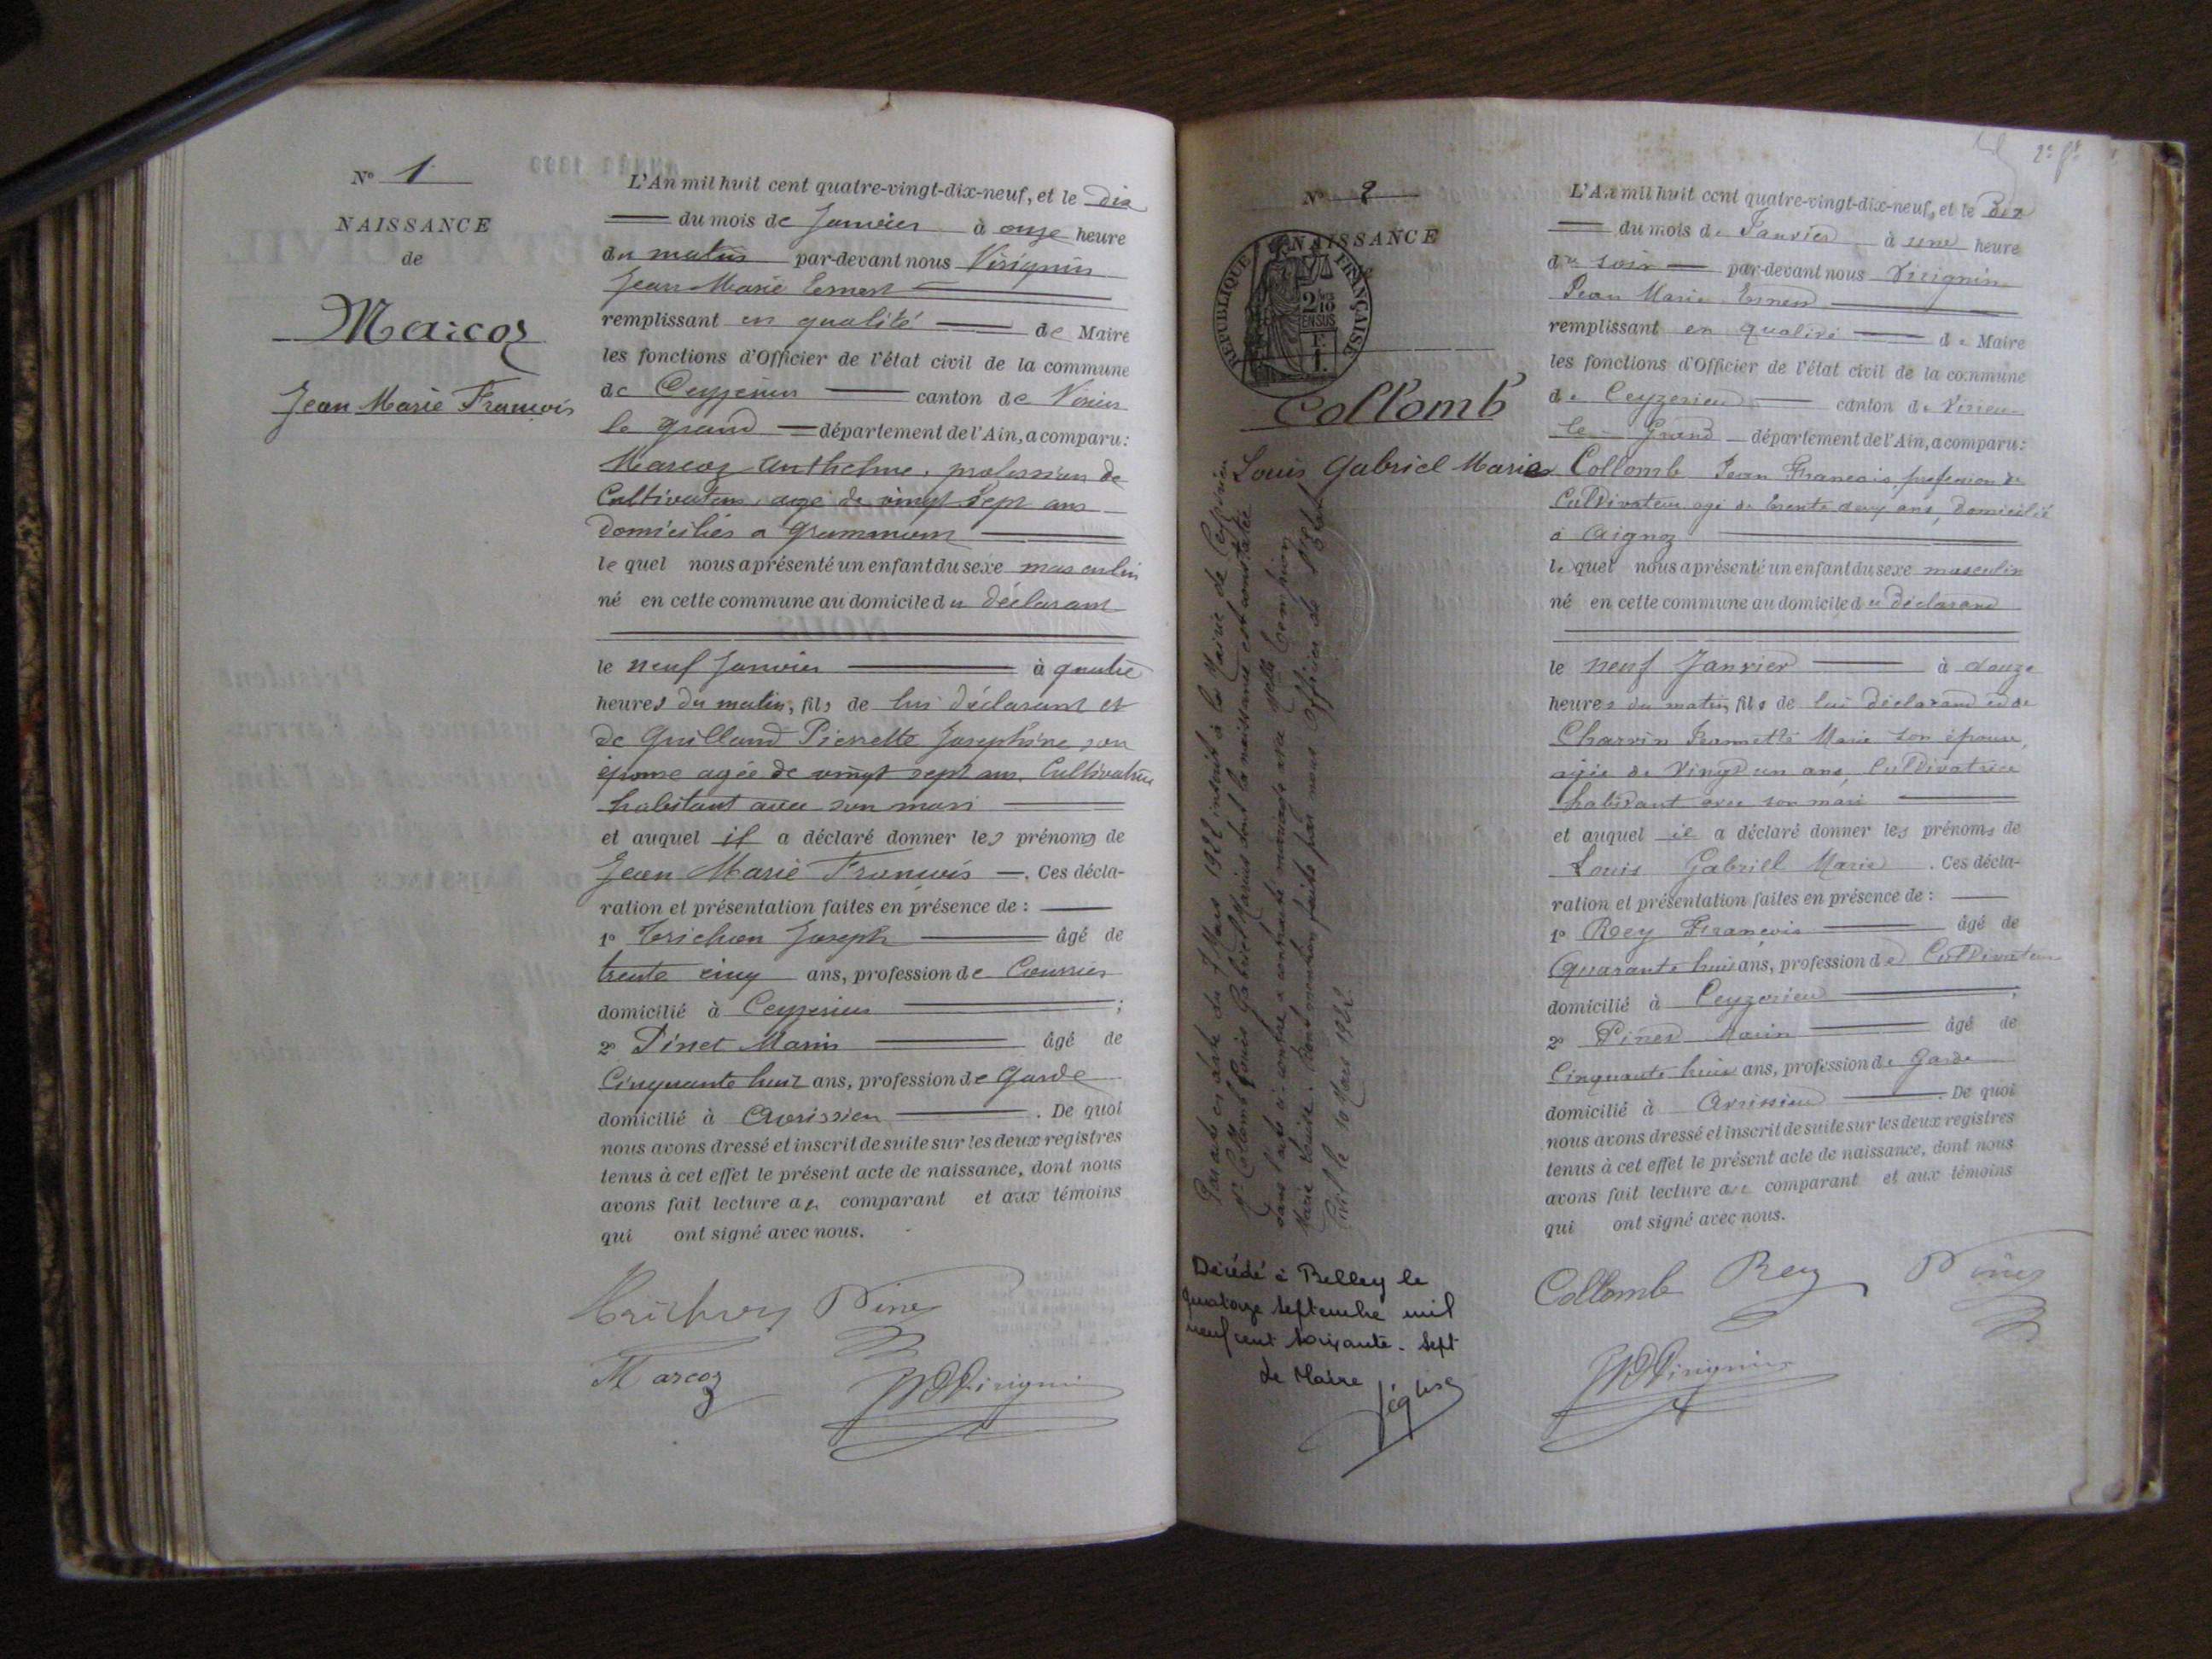 Nº 1
NAISSANCE
de
Marcoz
Jean Marie François
L'An mil huit cent quatre-vingt-dix-neuf, et le dix
du mois de Janvier à onze heure
du matin par-devant nous Virignin
Jean Marie Ernest
remplissant en qualité de Maire
les fonctions d'Officier de l'état civil de la commune
de Ceyzerieu canton de Virieu
le grand département de l'Ain, a comparu :
Marcoz Anthelme, profession de
Cultivateur, agé de vingt sept ans
domiciliés a Grammont
le quel nous a présenté un enfant du sexe masculin
né en cette commune au domicile du déclarant
le neuf Janvier à quatre
heures du matin, fils de lui déclarant et
de Guilland Pierrette Josephine son
épouse agée de vingt sept ans, Cultivatrice
habitant avec son mari
et auquel il a déclaré donner les prénoms de
Jean Marie François . Ces décla-
ration et présentation faites en présence de :
1º Trichon Joseph âgé de
trente cinq ans, profession de Courrier
domicilié à Ceyzerieu ;
2º Pinet Marin âgé de
Cinquante huit ans, profession de Garde
domicilié à Avrissieu . De quoi
nous avons dressé et inscrit de suite sur les deux registres
tenus à cet effet le présent acte de naissance, dont nous
avons fait lecture au comparant et aux témoins
qui ont signé avec nous.
Trichon Pinet
Marcoz Virignin
2e ft
Nº 2
NAISSANCE
RÉPUBLIQUE FRANÇAISE
2/10
EN SUS
Collomb
Louis Gabriel Marie
Par acte en date du Mars 1922 inscrit à la Mairie de Ceyzerieu
Mr Collomb Louis Gabriel Marius dont la naissance est constatée
dans l'acte ci-contre a contracté mariage avec Melle
Marie Louise. Dont mention faite par nous Officier de l'Etat
Civil le 10 Mars 1922.
Décédé à Belley le
quatorze septembre mil
neuf cent soixante-sept
Le Maire
L'An mil huit cent quatre-vingt-dix-neuf, et le Dix
du mois de Janvier à une heure
du soir par-devant nous Virignin
Jean Marie Ernest
remplissant en qualité de Maire
les fonctions d'Officier de l'état civil de la commune
de Ceyzerieu canton de Virieu
le Grand département de l'Ain, a comparu :
Collomb Jean François profession de
Cultivateur agé de trente deux ans, domicilié
à Aignoz
le quel nous a présenté un enfant du sexe masculin
né en cette commune au domicile du déclarant
le neuf Janvier à douze
heures du matin, fils de lui déclarant et de
Charvin Jeannette Marie son épouse,
agée de Vingt un ans, Cultivatrice
habitant avec son mari
et auquel il a déclaré donner les prénoms de
Louis Gabriel Marie . Ces décla-
ration et présentation faites en présence de :
1º Rey François âgé de
Quarante huit ans, profession de Cultivateur
domicilié à Ceyzerieu ;
2º Pinet Marin âgé de
Cinquante huit ans, profession de Garde
domicilié à Avrissieu . De quoi
nous avons dressé et inscrit de suite sur les deux registres
tenus à cet effet le présent acte de naissance, dont nous
avons fait lecture au comparant et aux témoins
qui ont signé avec nous.
Collomb Rey Pinet
Virignin